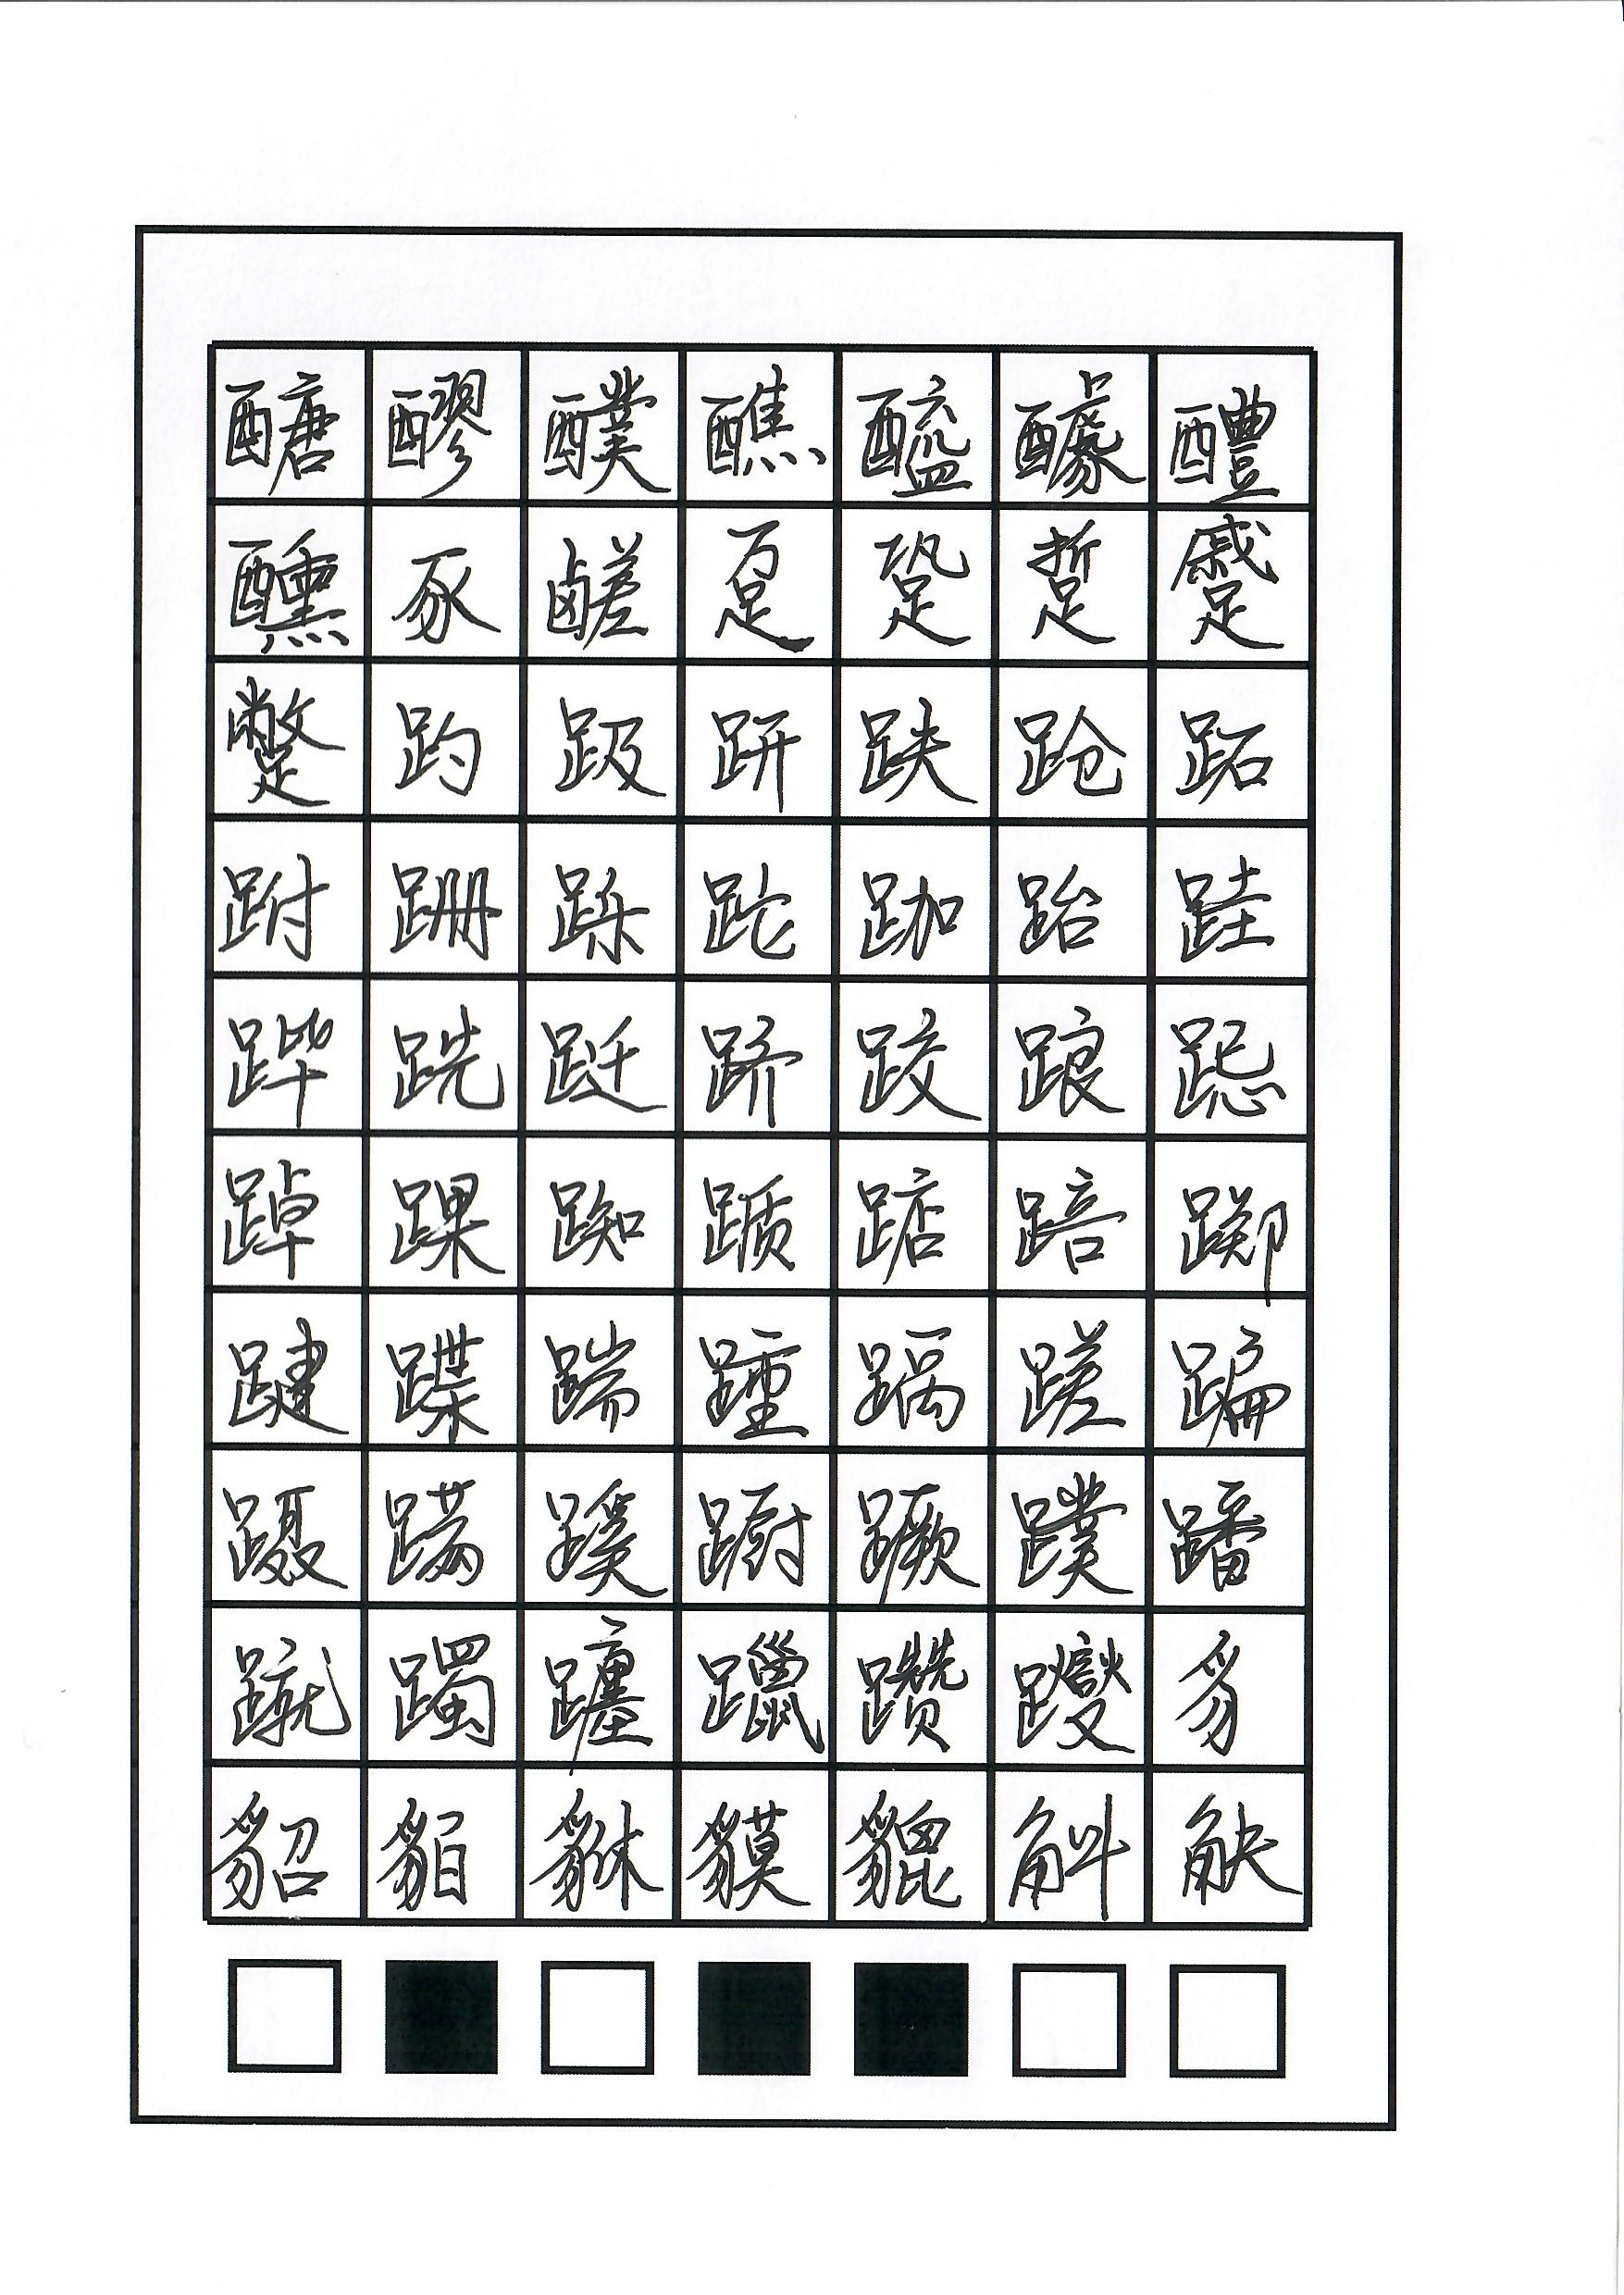 醣醪醭醮醯醵醴
醺豕鹾趸跫踅蹙
蹩趵趿趼趺跄跖
跗跚跞跎跏跆跬
跸跣跹跻跤踉跽
踔踝踟踬踮踣踯
踺蹀踹踵踽蹉蹁
蹑蹒蹊蹰蹶蹼蹯
蹴躅躔躐躜躞豸
貂貊貅貘貔斛觖